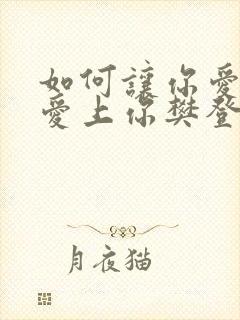 如何讓你愛
愛上你樊登
月夜猫